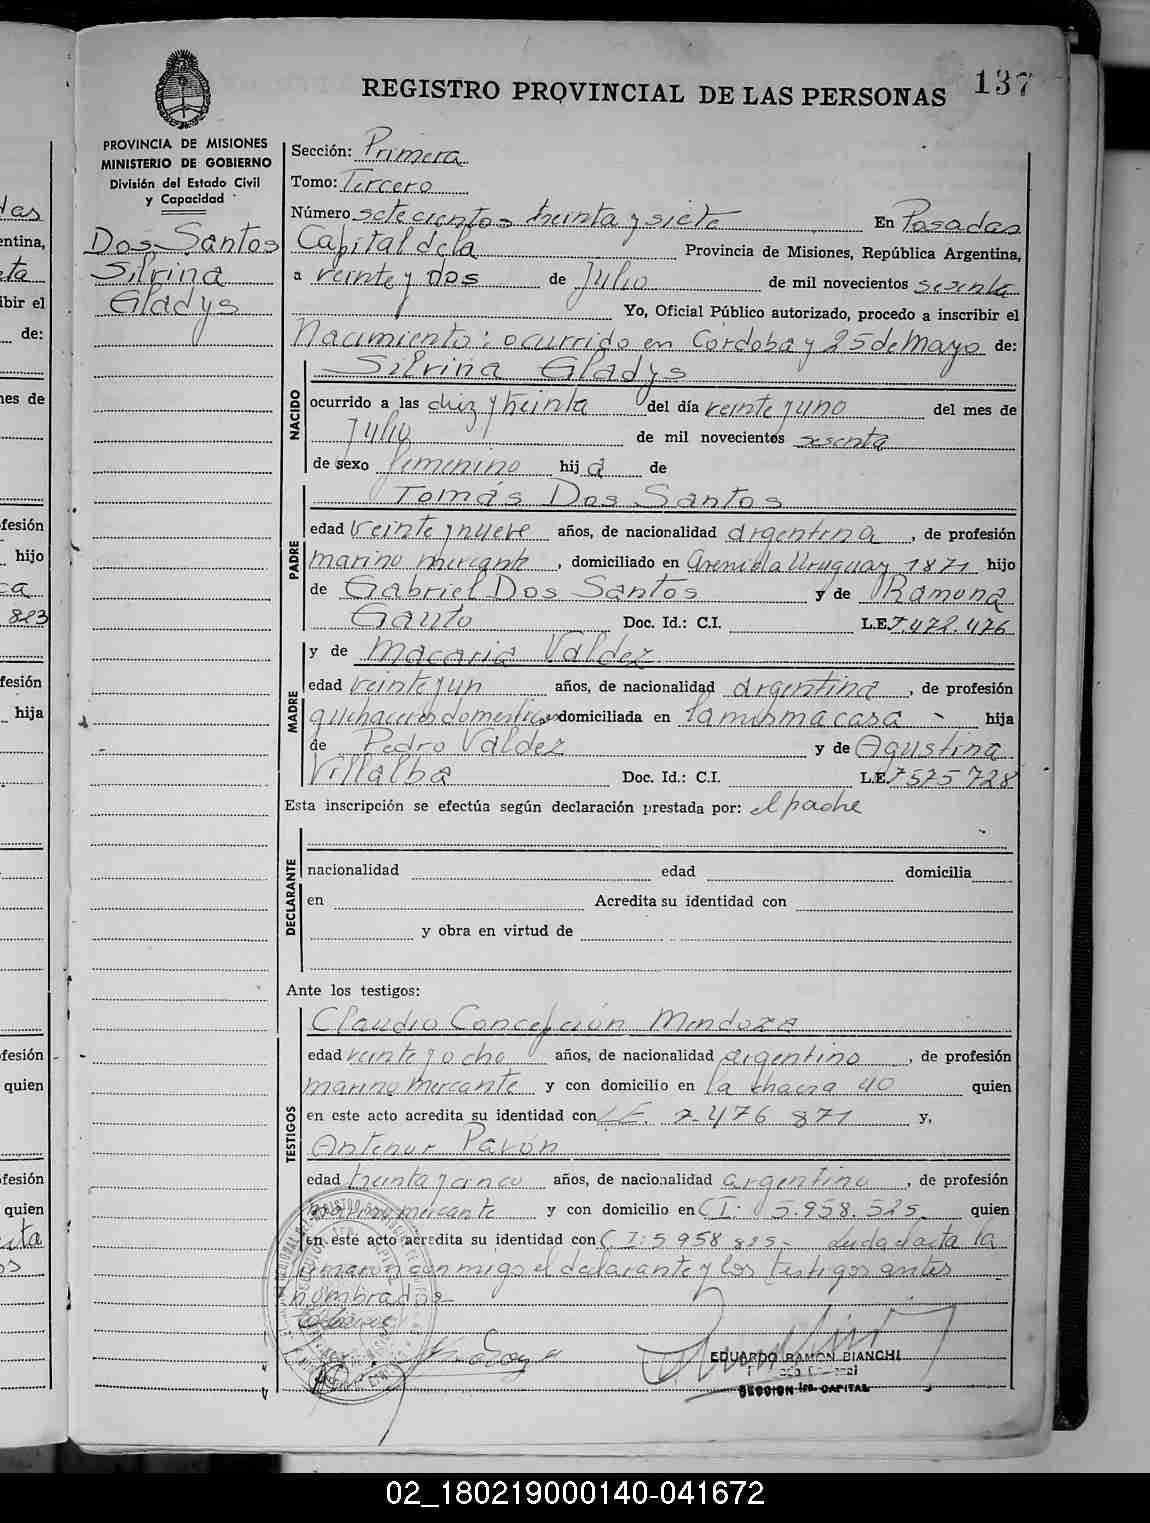 137
REGISTRO PROVINCIAL DE LAS PERSONAS
PROVINCIA DE MISIONES
MINISTERIO DE GOBIERNO
División del Estado Civil
y Capacidad
Dos Santos
Silvina
Gladys
Sección: Primera
Tomo: Tercero
Número setecientos treinta y siete En Posadas
Capital de la Provincia de Misiones, República Argentina,
a veinte y dos de Julio de mil novecientos sesenta
Yo, Oficial Público autorizado, procedo a inscribir el
Nacimiento: ocurrido en Córdoba y 25 de Mayo de:
NACIDO
Silvina Gladys
ocurrido a las diez y treinta del día veinte y uno del mes de
Julio de mil novecientos sesenta
de sexo femenino hija de
PADRE
Tomás Dos Santos
edad veinte y nueve años, de nacionalidad argentina, de profesión
marino mercante, domiciliado en avenida Uruguay 1871 hijo
de Gabriel Dos Santos y de Ramona
Gauto Doc. Id.: C.I. L.E. 7.472.476
MADRE
y de Macaria Valdez
edad veinte y un años, de nacionalidad argentina, de profesión
quehaceres domesticos domiciliada en la misma casa - hija
de Pedro Valdez y de Agustina
Villalba Doc. Id.: C.I. L.E. 7575728
Esta inscripción se efectúa según declaración prestada por: el padre
DECLARANTE
nacionalidad edad domicilia
en Acredita su identidad con
y obra en virtud de
Ante los testigos:
TESTIGOS
Claudio Concepción Mendoza
edad veinte y ocho años, de nacionalidad argentino, de profesión
marino mercante y con domicilio en la chacra 40 quien
en este acto acredita su identidad con L.E. 7.476 871 y,
Antenor Pavón
edad treinta y cinco años, de nacionalidad argentino, de profesión
marino mercante y con domicilio en C I: 5.958.525 quien
en este acto acredita su identidad con C.I: 5 958 825- Leida el acta la
firmaron conmigo el declarante y los testigos antes
nombrados
EDUARDO RAMON BIANCHI
SECCION 1ra. CAPITAL
02_180219000140-041672